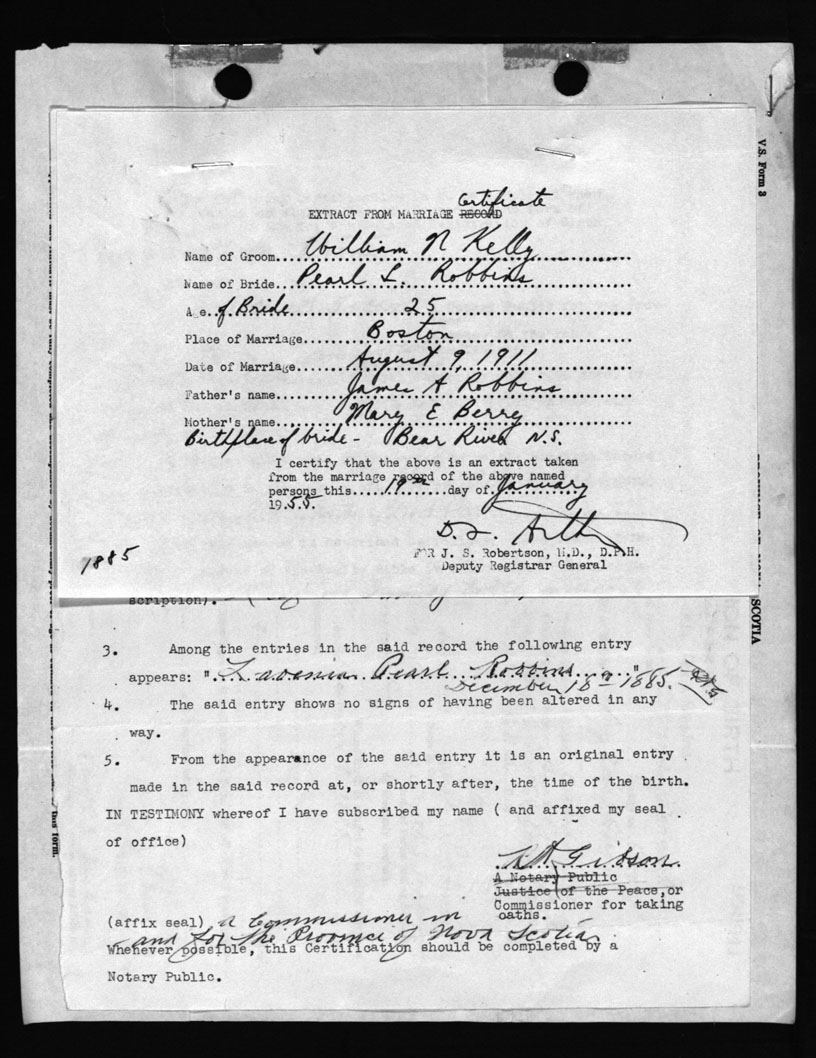 V.S. Form 3
Certificate
EXTRACT FROM MARRIAGE RECORD
Name of Groom....William N Kelly....
Name of Bride....Pearl L. Robbins....
A e..of Bride....25....
Place of Marriage....Boston....
Date of Marriage....August 9, 1911....
Father's name....James A Robbins....
Mother's name....Mary E Berry....
Birthplace of bride - Bear River N.S.
I certify that the above is an extract taken
from the marriage record of the above named
persons this....19th....day of..January....
1955.
FOR J. S. Robertson, M.D., D.P.H.
Deputy Registrar General
1885
SCOTIA
scription).
3. Among the entries in the said record the following entry
appears: "....Pearl....Robbins...."
December 18th 1885.
4. The said entry shows no signs of having been altered in any
way.
5. From the appearance of the said entry it is an original entry
made in the said record at, or shortly after, the time of the birth.
IN TESTIMONY whereof I have subscribed my name ( and affixed my seal
of office)
Gibson.
A Notary Public
Justice of the Peace, or
Commissioner for taking
oaths.
(affix seal) a Commissioner in
and for the Province of Nova Scotia
Whenever possible, this Certification should be completed by a
Notary Public.
this form.